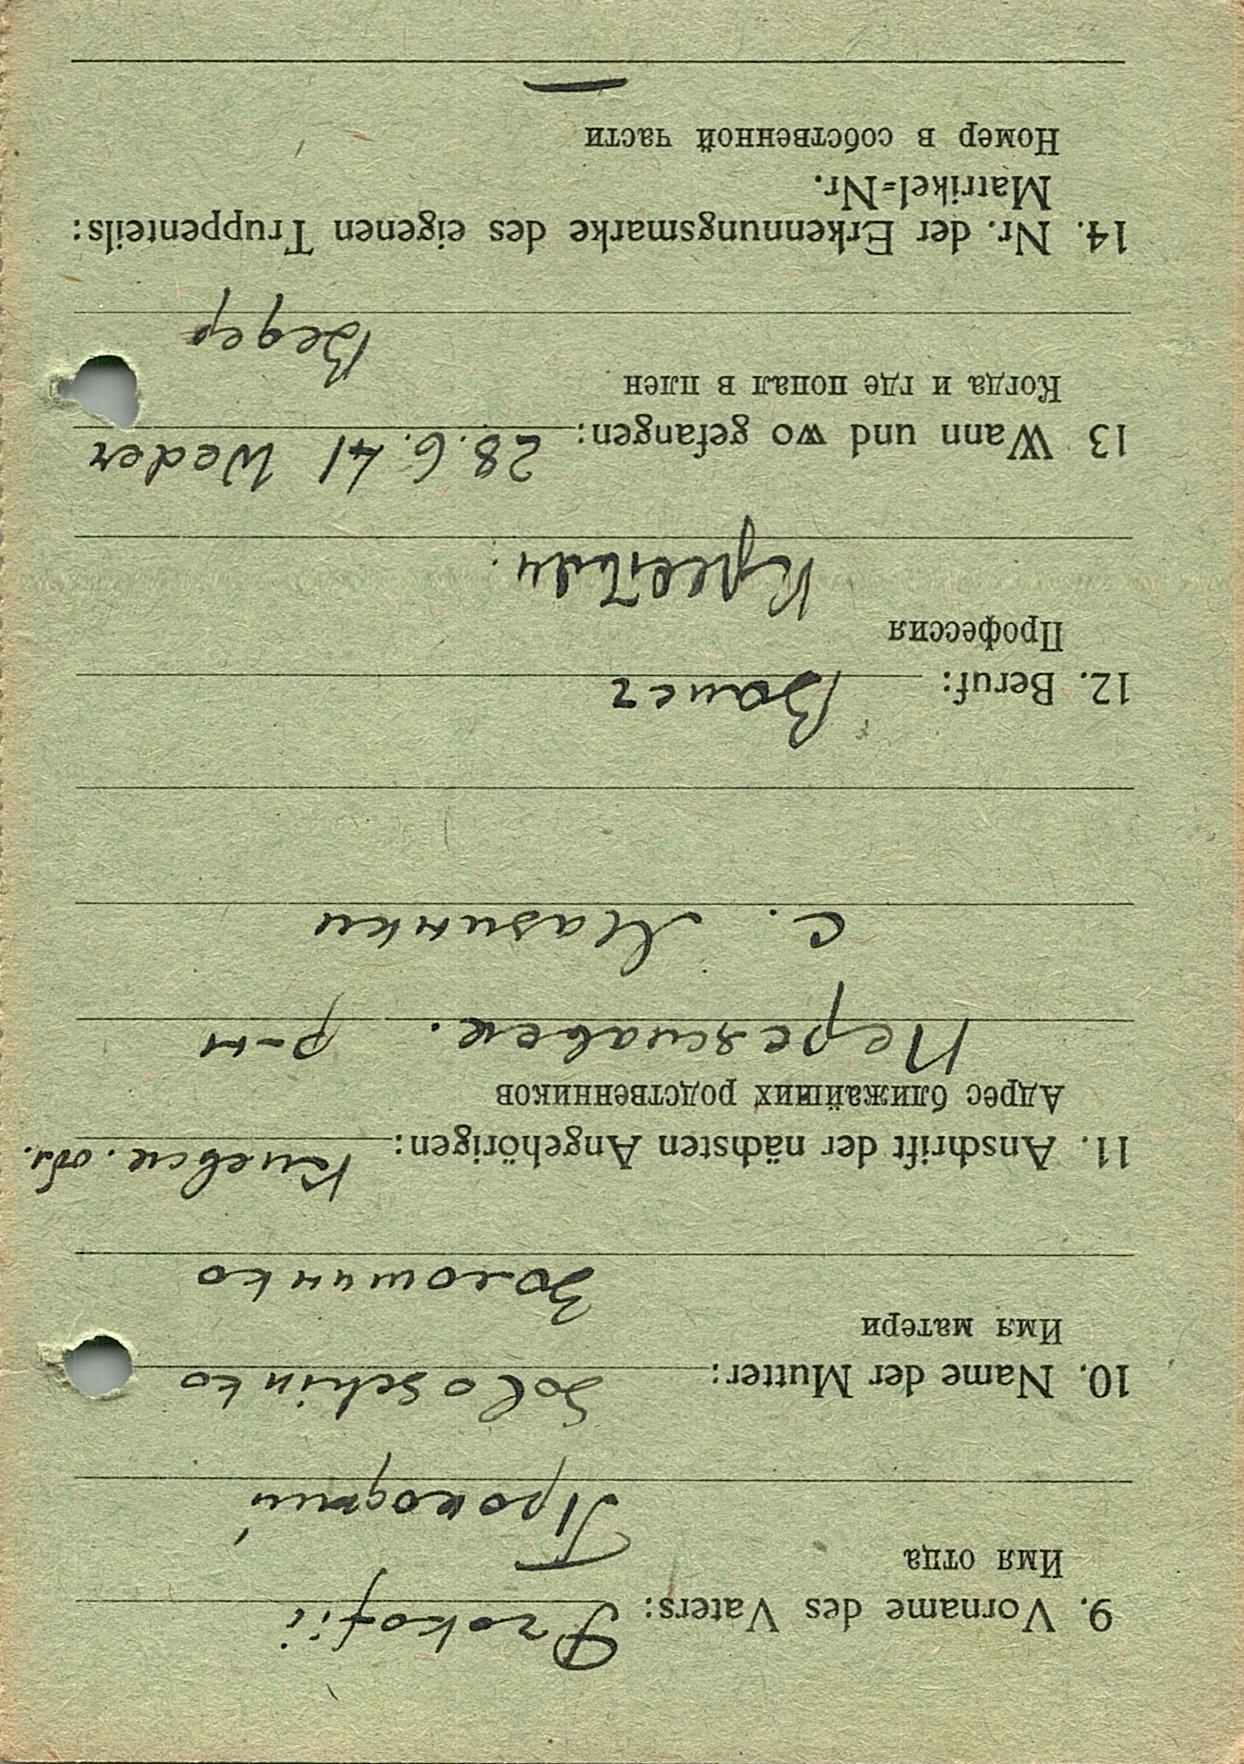 9. Vorname des Vaters: Prokofii
Имя отца
Прокофий
10. Name der Mutter: Soloschinko
Имя матери
Золошинко
11. Anschrift der nächsten Angehörigen: Киевск. обл.
Адрес ближайших родственников
Переяславск. р-н
с. Мазинки
12. Beruf: Bauer
Профессия
Крестьян.
13 Wann und wo gefangen: 28.6.41 Weder
Когда и где попал в плен
Ведер
14. Nr. der Erkennungsmarke des eigenen Truppenteils:
Matrikel=Nr.
Номер в собственной части
—